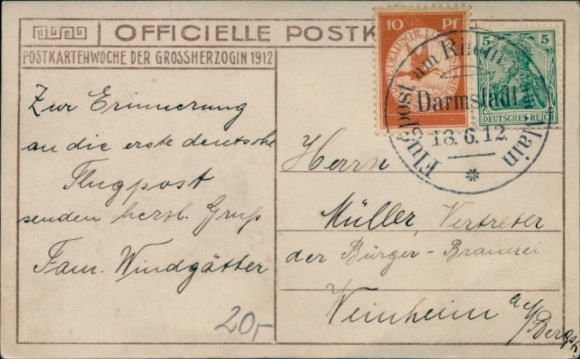 OFFICIELLE POSTK
POSTKARTENWOCHE DER GROSSHERZOGIN 1912
10 Pf
5 5
DEUTSCHES REICH
Flugpost am Rhein Main
Darmstadt
18.6.12
*
Zur Erinnerung
an die erste deutsche
Flugpost
senden herzl. Gruß
Fam. Windgätter
20,-
Herrn
Müller, Vertreter
der Bürger-Brauerei
Weinheim a/Bergstr.